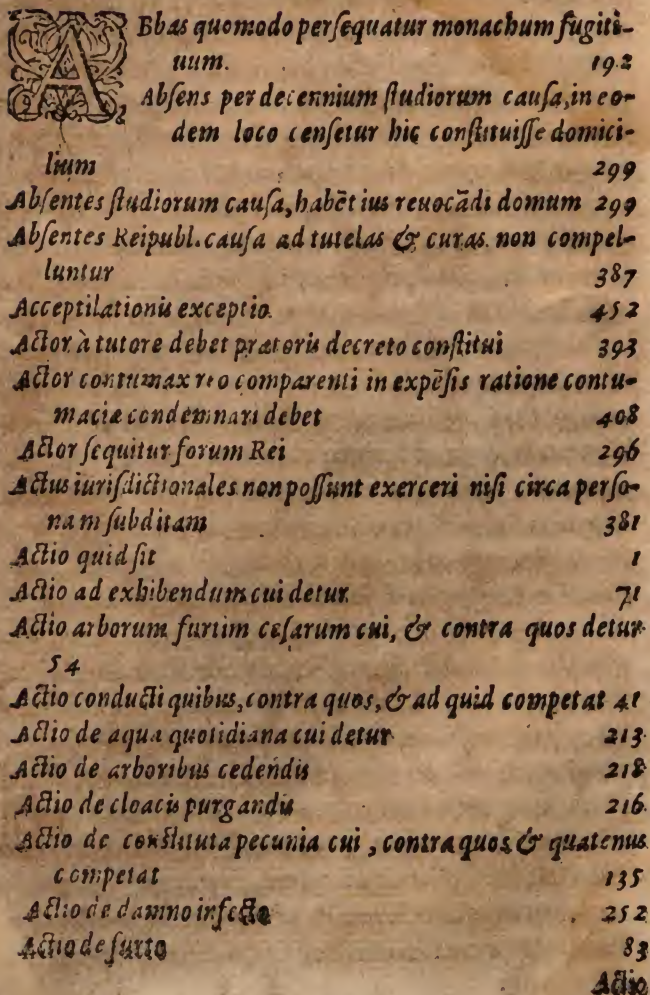 ABbas quomodo persequatur monachum fugiti-
uum. 192
Absens per decennium studiorum causa, in eo-
dem loco censetur hic constituisse domici-
lium 299
Absentes studiorum causa, habēt ius reuocādi domum 299
Absentes Reipubl. causa ad tutelas & curas. non compel-
luntur 387
Acceptilationis exceptio. 452
Actor à tutore debet prætoris decreto constitui 393
Actor contumax reo comparenti in expēsis ratione contu-
maciæ condemnari debet 408
Actor sequitur forum Rei 296
Actus iurisdictionales non possunt exerceri nisi circa perso-
nam subditam 381
Actio quid sit 1
Actio ad exhibendum cui detur. 71
Actio arborum furtim cesarum cui, & contra quos detur
54
Actio conducti quibus, contra quos, & ad quid competat 41
Actio de aqua quotidiana cui detur 213
Actio de arboribus cedendis 218
Actio de cloacis purgandis 216
Actio de constituta pecunia cui, contra quos & quatenus
competat 135
Actio de damno infecto 252
Actio de furto 83
Actio